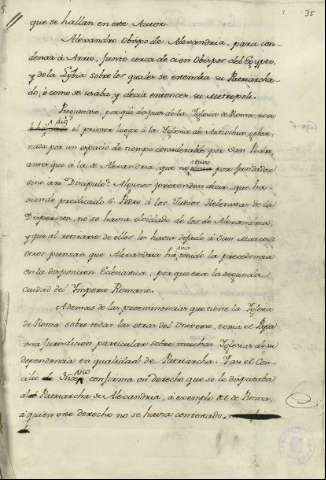 35
que se hallan en este Autor.
Alexandro Obispo de Alexandria, para con-
denar à Arrio, juntó cerca de cien Obispos del Egypto,
y de la Lybia sobre los quales se extendia su Patriarcha-
do, ò como se usaba y decia entonces, su Metropoli.
despues de la Iglesia de Roma,
el primer lugar à la Iglesia de Antiochia gober-
nada por un espacio de tiempo considerable por San Pedro,
que à la de Alexandria, que no tuvo por fundador
sino à un Discipulo. Algunos pretenden decir, que ha-
viendo predicado S. Pedro à los Judios Helenistas de la
Dispersion, no se havia olvidado de los de Alexandria,
y que al retirarse de ellos les havia dejado à San Marcos;
otros piensan que Alexandria ha tenido la precedencia
en la disposicion Eclesiastica, porque era la segunda
Ciudad del Imperio Romano.
Ademas de las preeminencias que tiene la Iglesia
de Roma sobre todas las otras del Universo, tenia el Papa
una Jurisdicion particular sobre muchas Iglesias de su
dependencia en qualidad de Patriarcha. Y assi el Con-
cilio de Nicea confirma un derecho que se le disputaba
al Patriarcha de Alexandria, à exemplo del de Roma,
à quien este derecho no se havia contextado.